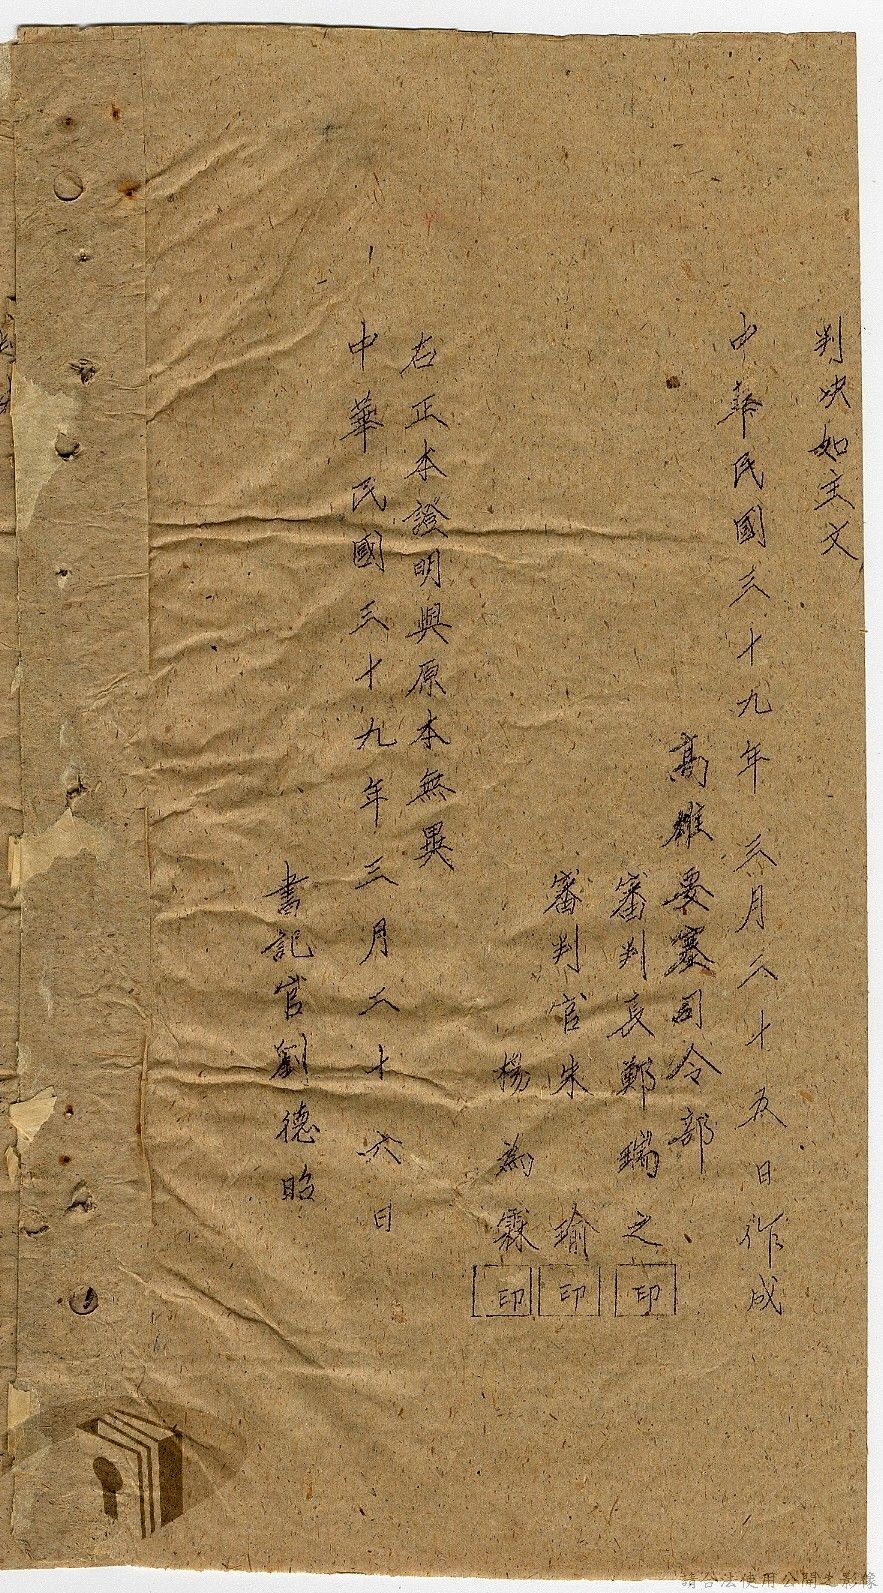 判决如主文
中華民國三十九年三月二十五日作成
高雄要塞司令部
審判長鄭瑞之印
審判官朱瑜印
楊為霖印
右正本證明與原本無異
中華民國三十九年三月二十六日
書記官劉德昭
請合法使用公開之影像